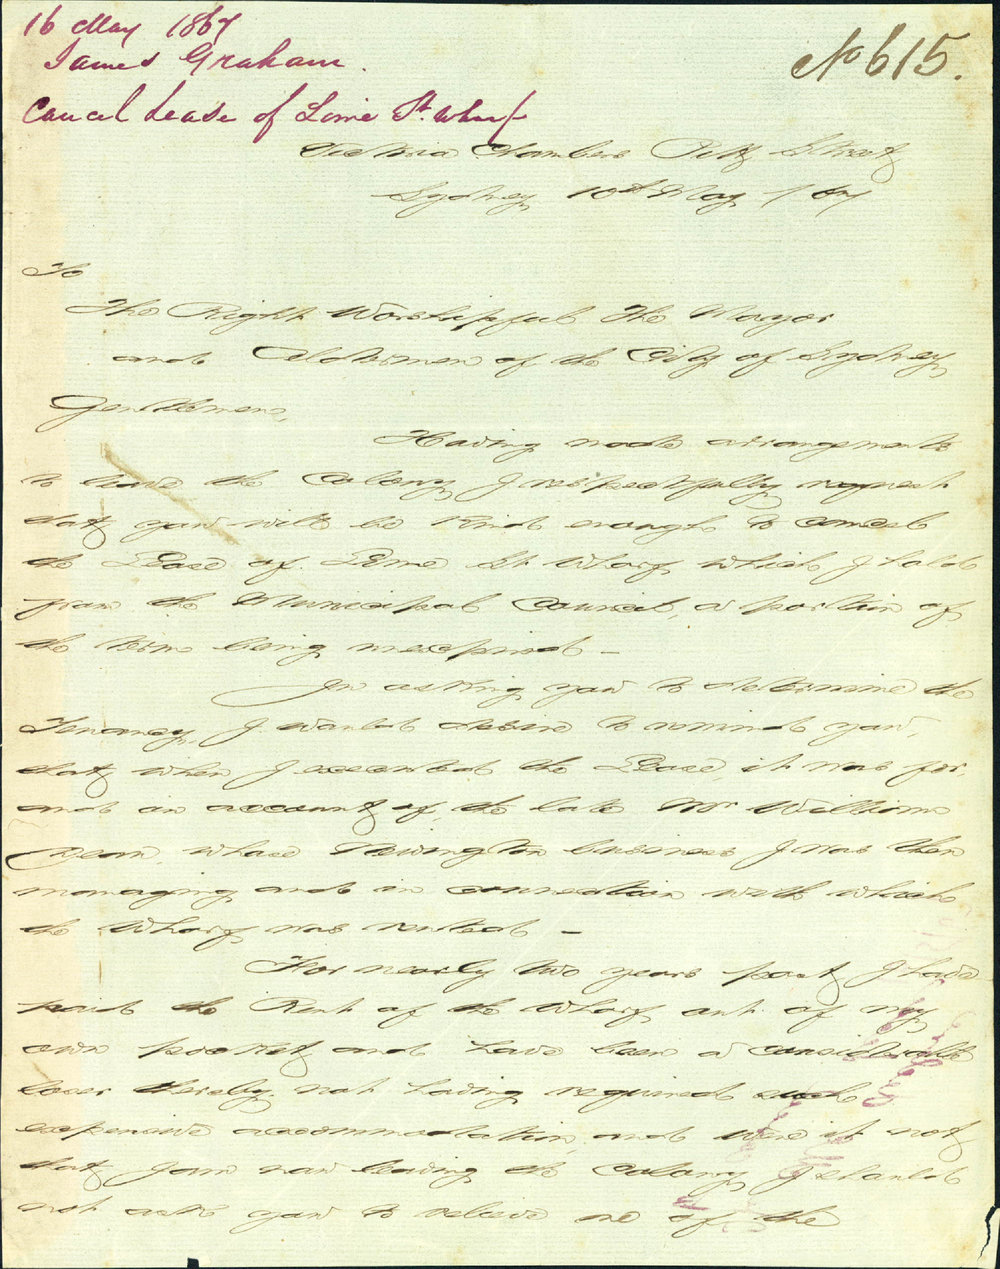 16 May 1867
James Graham.
Cancel Lease of Lime St. Wharf
No 615.
Victoria Chambers Pitt Street
Sydney 10th May / 67
To
The Right Worshipful The Mayor
and Aldermen of the City of Sydney
Gentlemen,
Having made arrangements
to leave the Colony, I respectfully request
that you will be kind enough to cancel
the Lease of Lime St Wharf, which I hold
from the Municipal Council, a portion of
the term being unexpired –
In asking you to determine the
Tenancy, I would desire to remind you,
that when I executed the Lease, it was for
and on account of, the late Mr William
Dean, whose Newington business I was then
managing and in connection with which
the Wharf was rented –
For nearly two years past, I have
paid the Rent of the Wharf out of my
own pocket and have been a considerable
loser thereby, not having required such
expensive accommodation, and were it not
that I am now leaving the Colony, I should
not ask you to relieve me of the